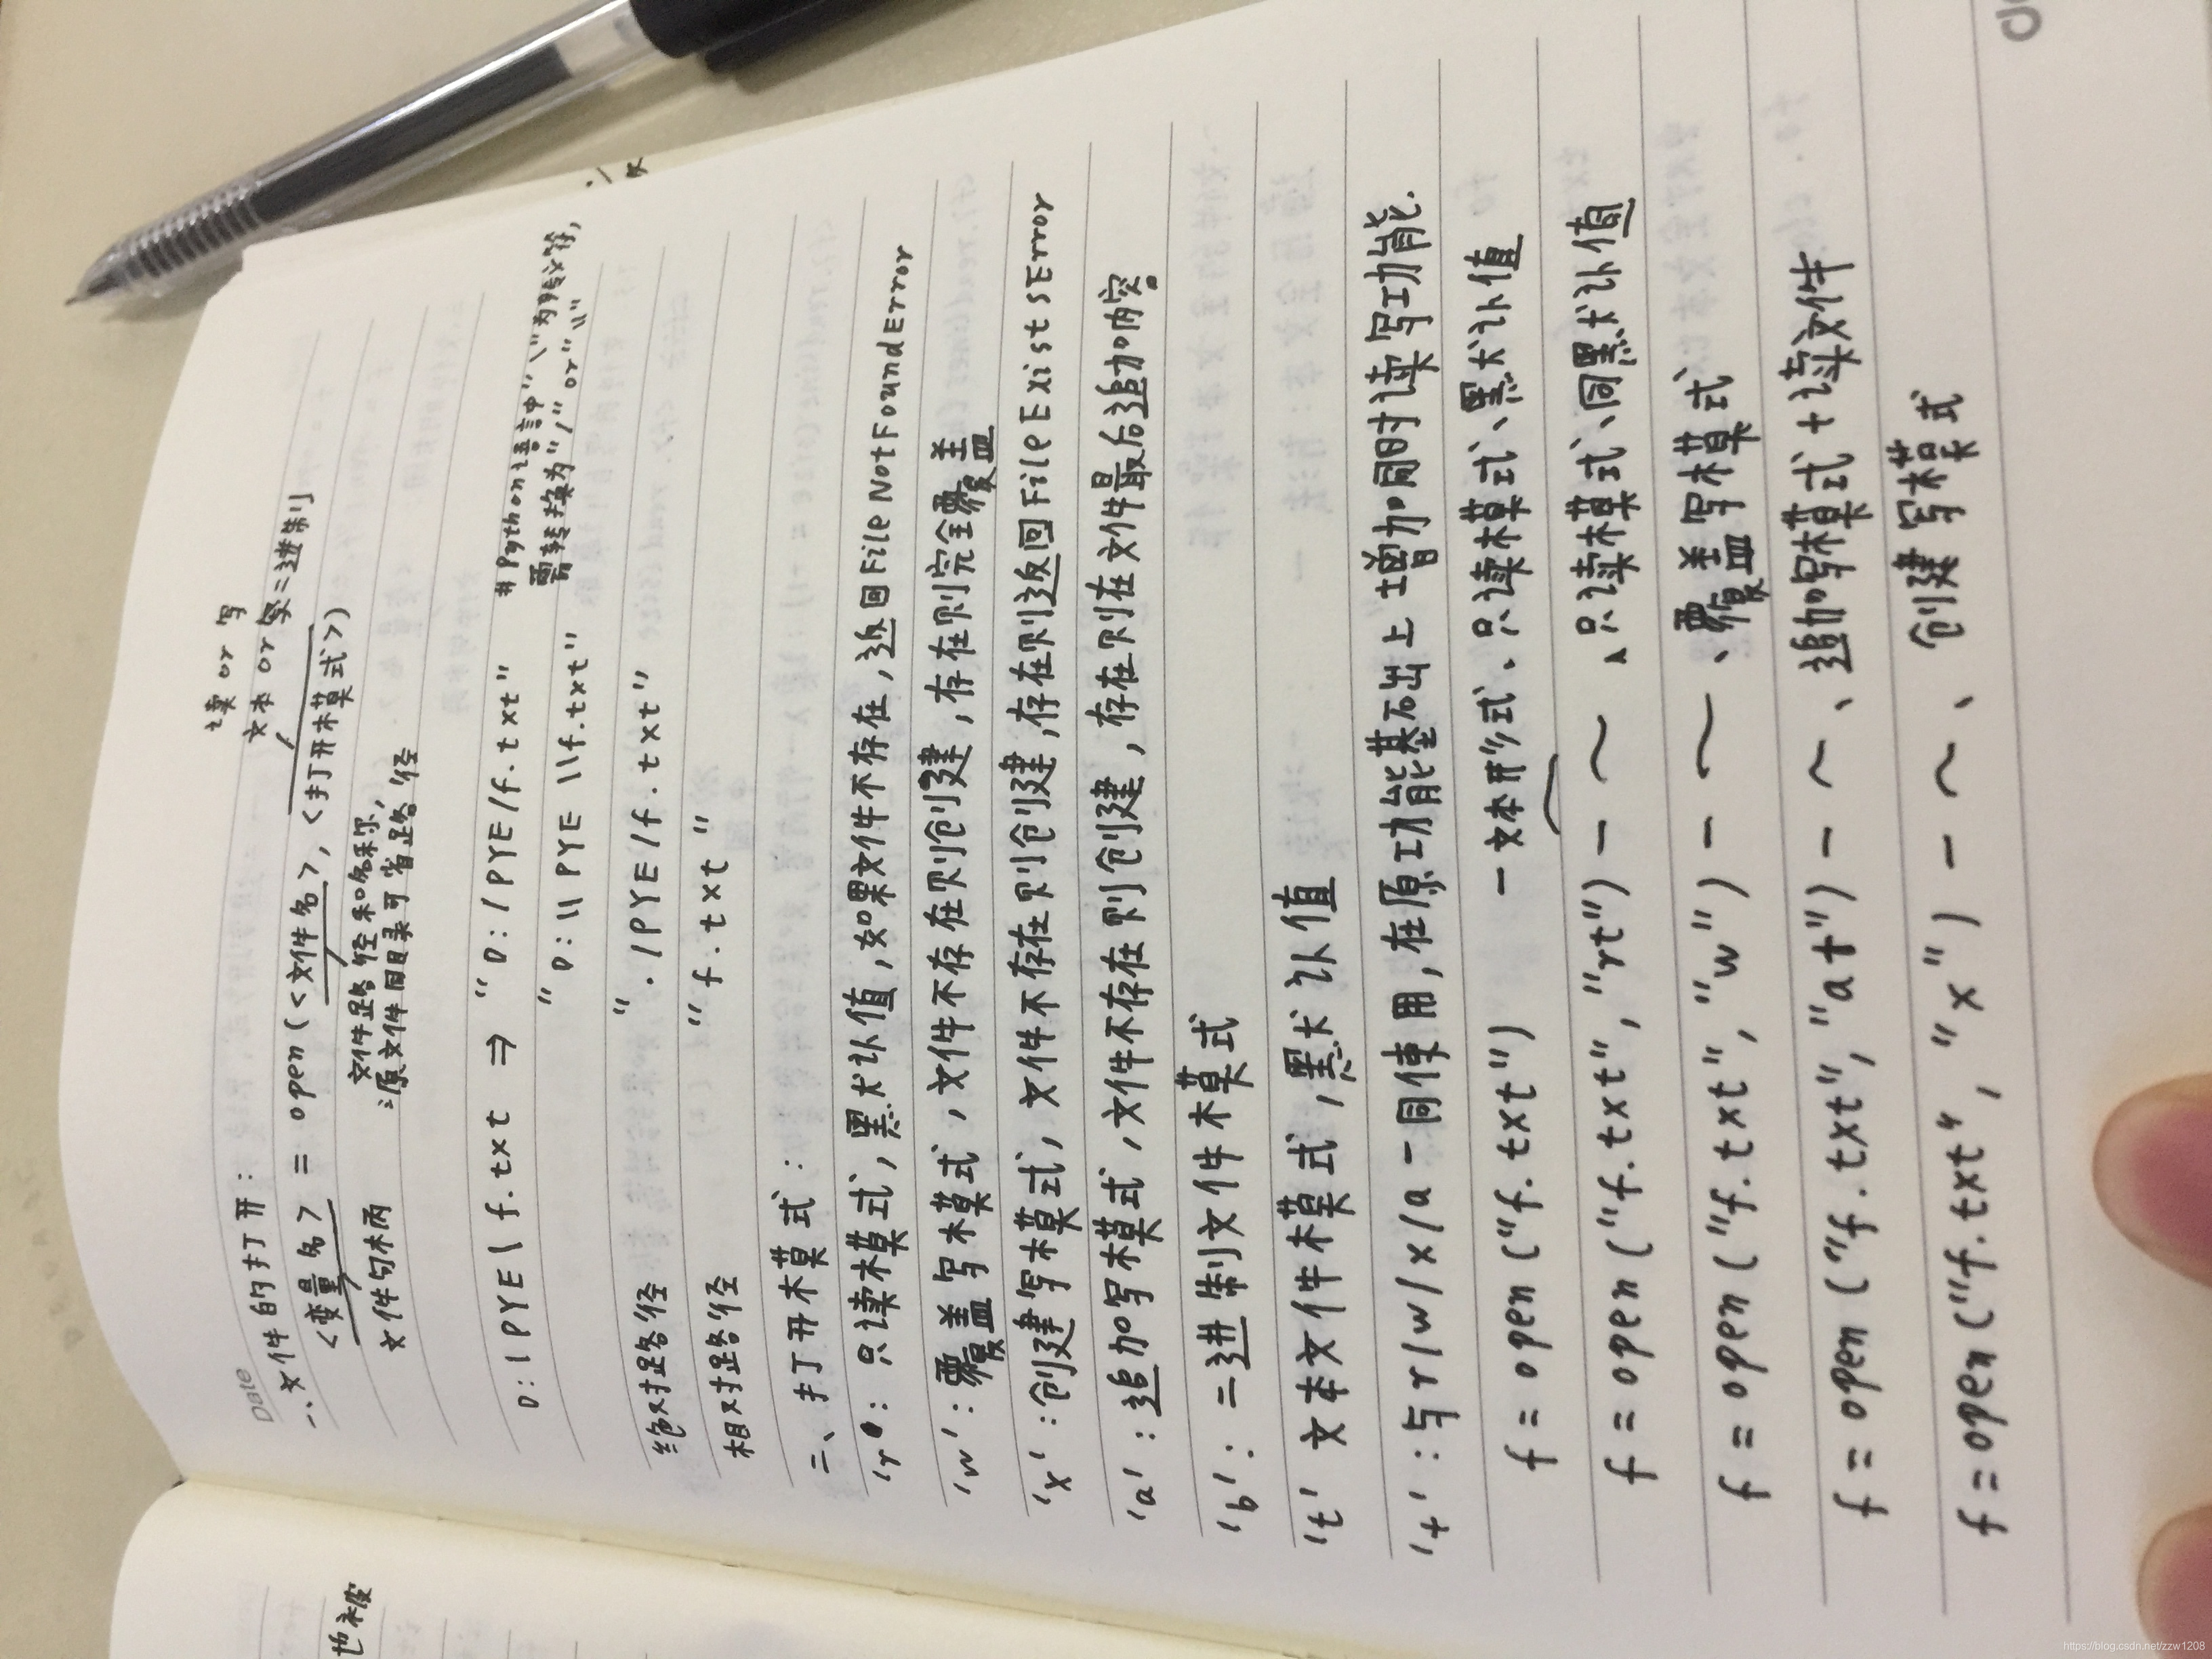 Date
读 or 写
文本 or 二进制
一、文件的打开:
<变量名> = open(<文件名>, <打开模式>)
文件句柄
文件路径和名称,
源文件同目录可省路径
D:\PYE\f.txt ⇒ "D:/PYE/f.txt"
#Python语言中"\"为转义符,
需转换为"/" or "\\"
"D:\\PYE\\f.txt"
绝对路径 "./PYE/f.txt"
相对路径 "f.txt"
二、打开模式:
'r': 只读模式,默认值,如果文件不存在,返回FileNotFoundError
'w':覆盖写模式,文件不存在则创建,存在则完全覆盖
'x':创建写模式,文件不存在则创建,存在则返回FileExistsError
'a':追加写模式,文件不存在则创建,存在则在文件最后追加内容
'b':二进制文件模式
't' 文本文件模式,默认值
'+':与r/w/x/a一同使用,在原功能基础上增加同时读写功能.
f = open("f.txt") — 文本形式、只读模式、默认值
f = open("f.txt","rt") — ~、只读模式、同默认值
f = open("f.txt","w") — ~、覆盖写模式
f = open("f.txt","a+") — ~、追加写模式+读文件
f = open("f.txt","x") — ~、创建写模式
也被
https://blog.csdn.net/zzw1208